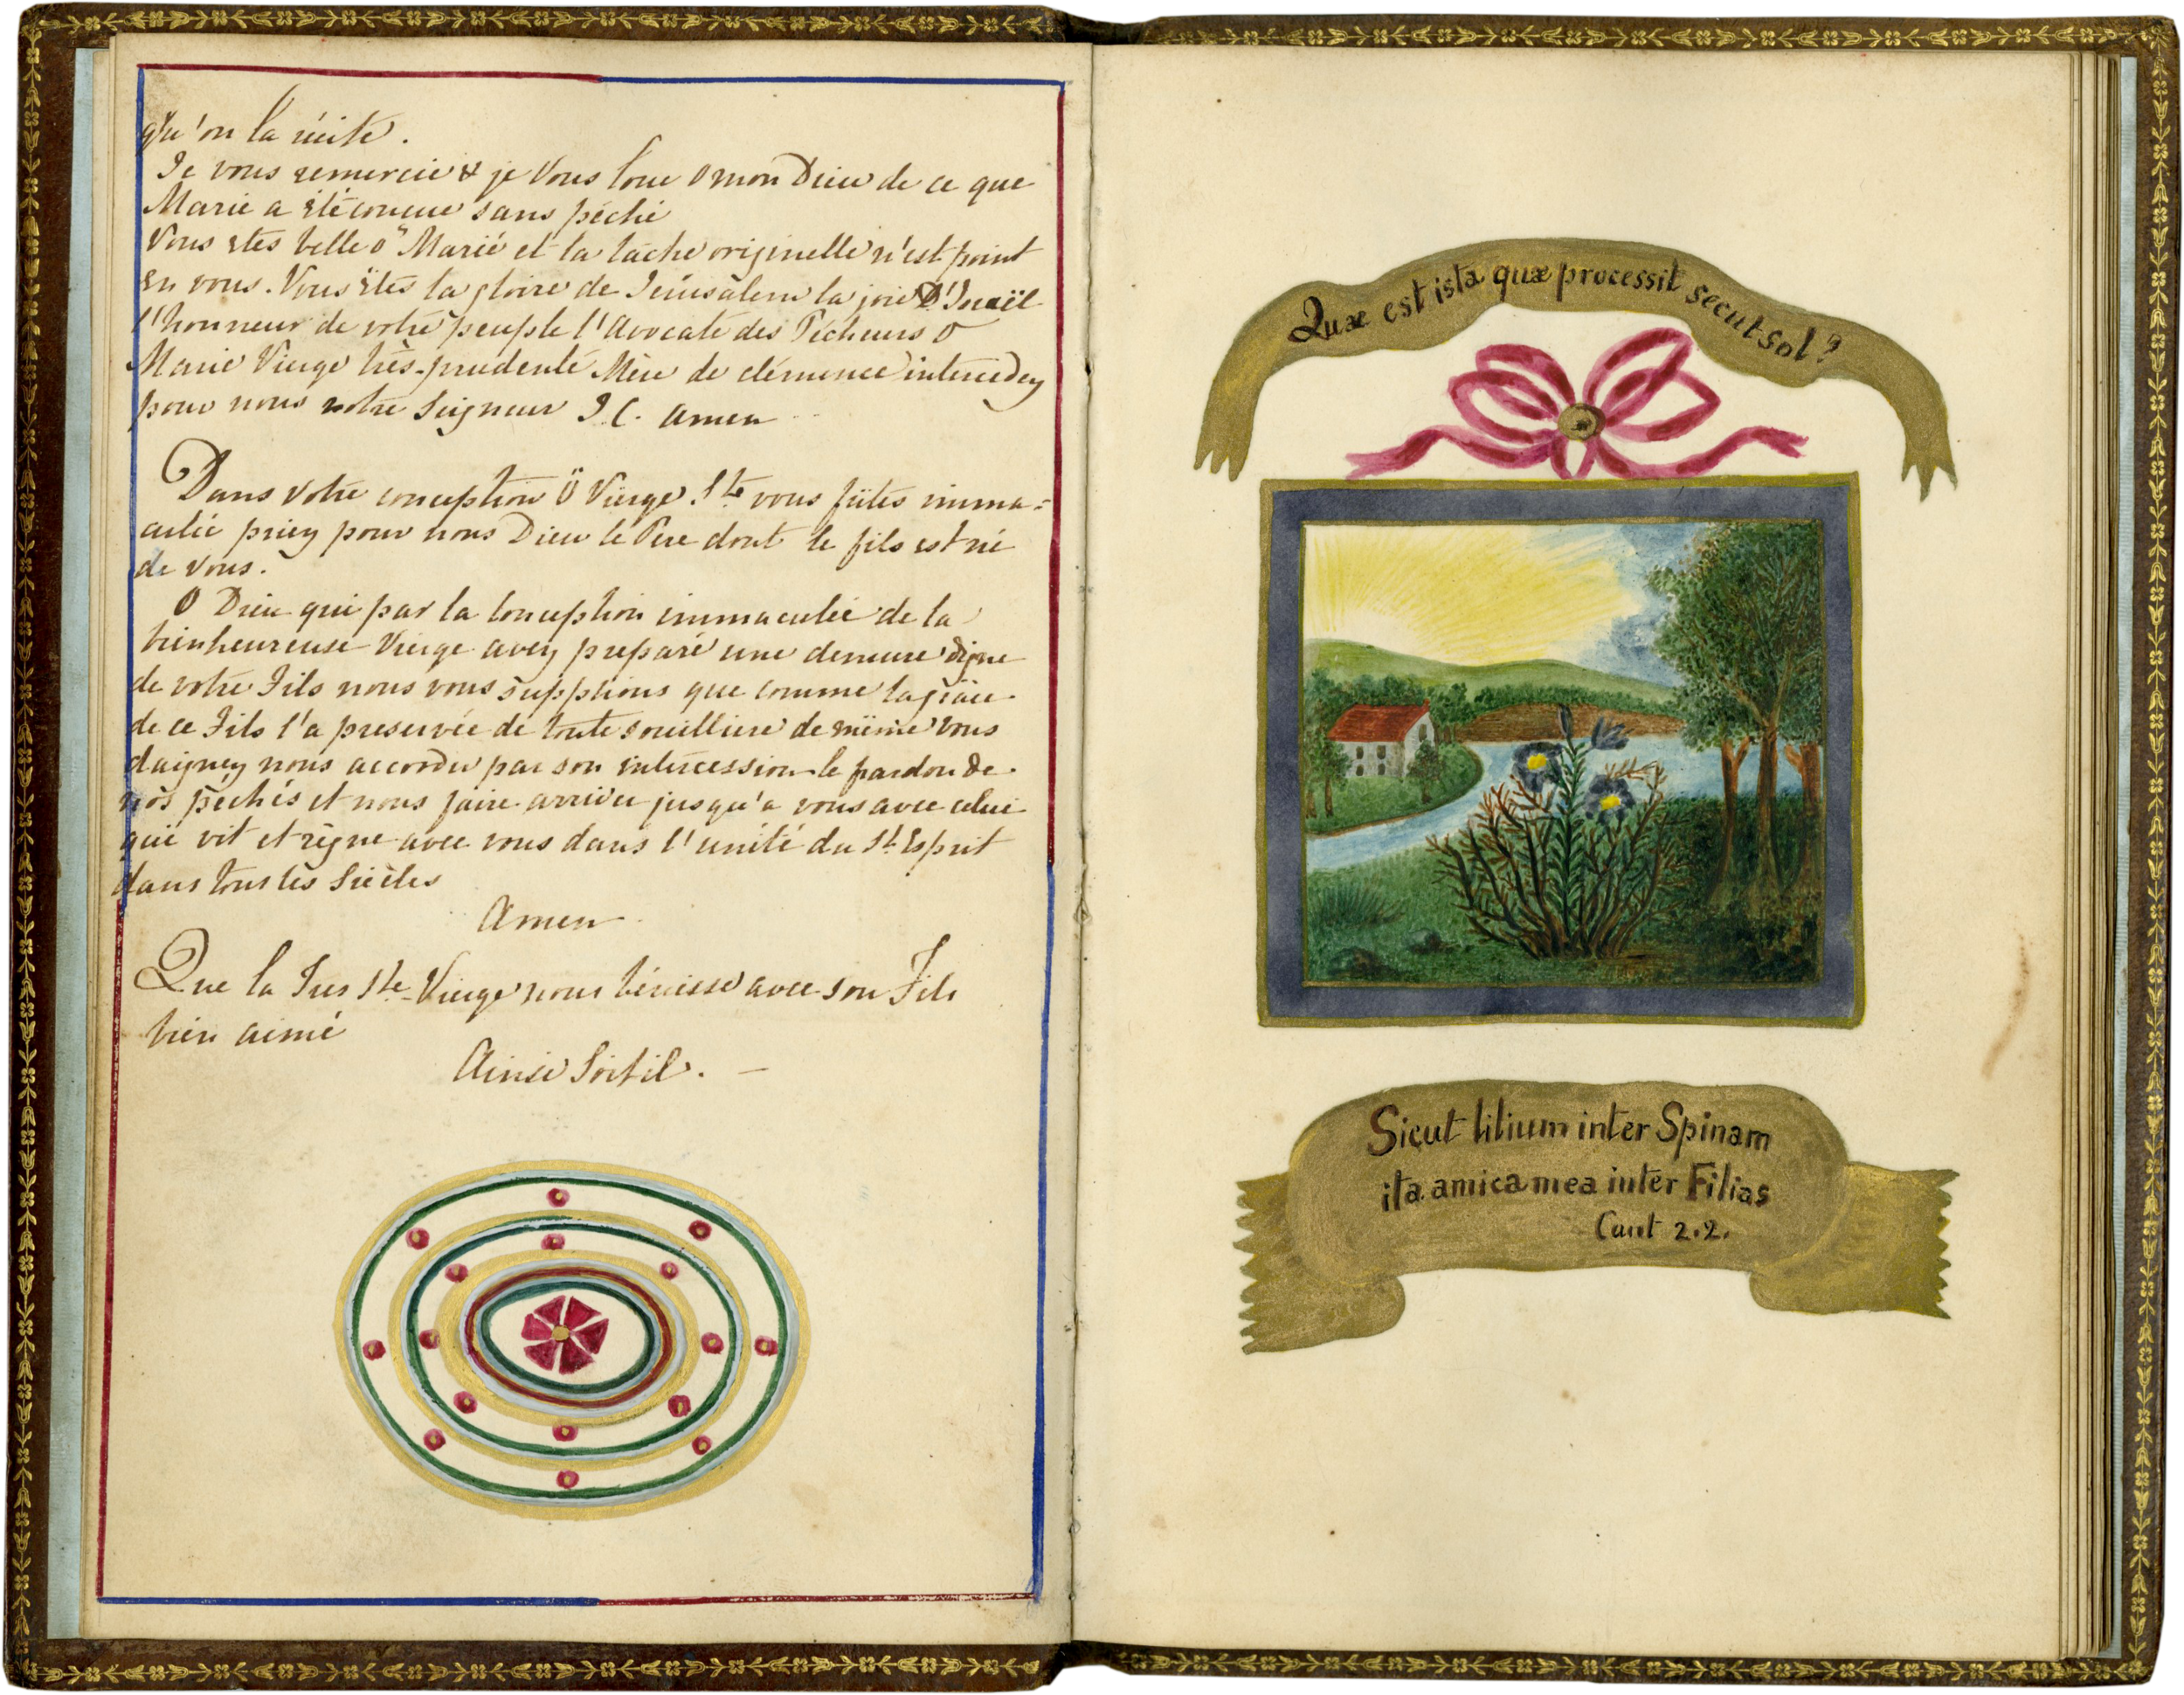 qu'on la récite.
Je vous remercie & je vous loue o mon Dieu de ce que
Marie a été concue sans péché
Vous etes belle o Marie et la tache originelle n'est point
en vous. Vous êtes la gloire de Jérusalem la joie D'Israël
l'honneur de votre peuple l'Avocate des Pecheurs o
Marie Vierge très-prudente Mère de clémence intercedez
pour nous notre Seigneur J. C. amen
Dans votre conception ô Vierge Ste vous fûtes imma=
culée priez pour nous Dieu le Père dont le fils est né
de vous.
O Dieu qui par la Conception immaculée de la
bienheureuse Vierge avez preparé une demeure digne
de votre Fils nous vous supplions que comme la grâce
de ce Fils l'a preservée de toute souillure de même vous
daignez nous accorder par son intercession le pardon de
nos pechés et nous faire arriver jusqu'a vous avec celui
qui vit et règne avec vous dans l'unité du St Esprit
dans tous les Siècles
Amen
Que la Tres Ste Vierge nous bénisse avec son Fils
bien aimé
Ainsi Soit il. —
Quæ est ista quæ processit secut sol?
Sicut lilium inter Spinam
ita amica mea inter Filias
Cant 2.2.